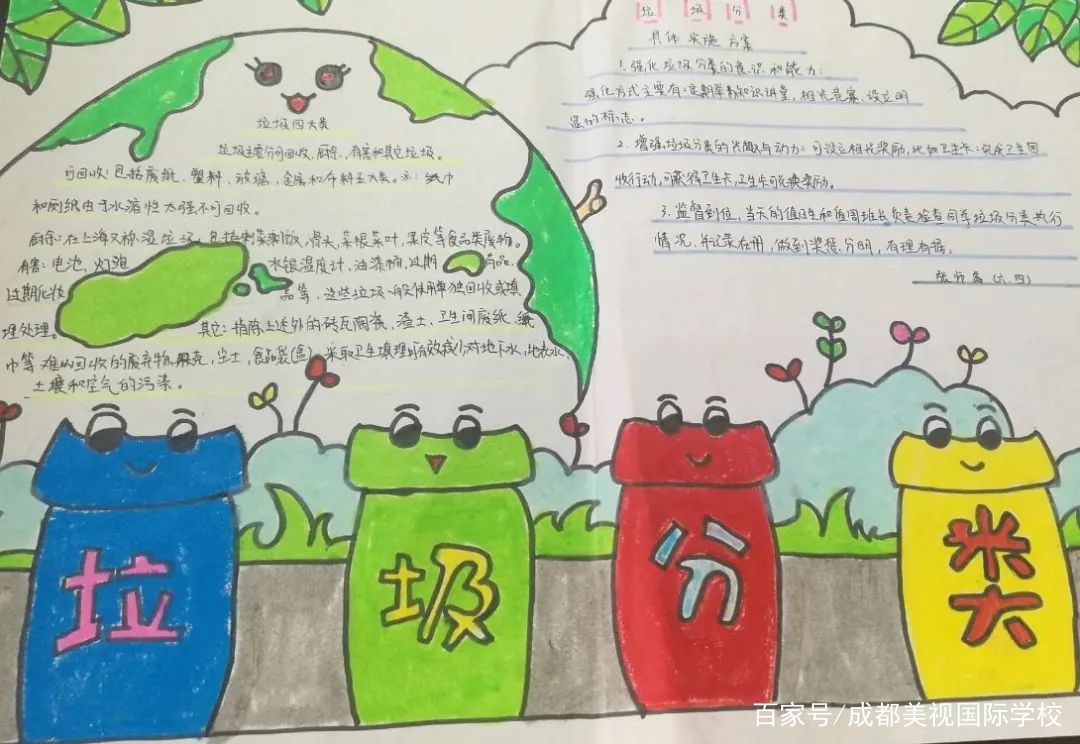 垃圾四大类
垃圾主要分可回收、厨余、有害和其它垃圾。
可回收：包括废纸、塑料、玻璃、金属和布料五大类。注：纸巾
和厕纸由于水溶性太强不可回收。
厨余：在上海又称湿垃圾，包括剩菜剩饭、骨头、菜根菜叶、果皮等食品类废物。
有害：电池、灯泡、水银温度计、油漆桶、过期药品、
过期化妆品等，这些垃圾一般使用单独回收或填
埋处理。
其它：指除上述外的砖瓦陶瓷、渣土、卫生间废纸、纸
巾等难以回收的废弃物、果壳、尘土、食品袋(盒)。采取卫生填理可有效减少对地下水、地表水、
土壤和空气的污染。
垃圾分类
具体实施方案
1.强化垃圾分类的意识和能力：
强化方式主要有：定期举办知识讲堂，相关竞赛，设立明
显的标志。
2.增强垃圾分类的兴趣与动力：可设立相关奖励，比如卫生卡：包庆卫生回
收行动，可获得卫生卡，卫生卡可兑换奖励。
3.监督到位，当天的值日生和值周班长负责检查同学垃圾分类执行
情况，并记录在册，做到奖惩分明，有理有据。
(六.四)
垃
圾
分
类
百家号/成都美视国际学校